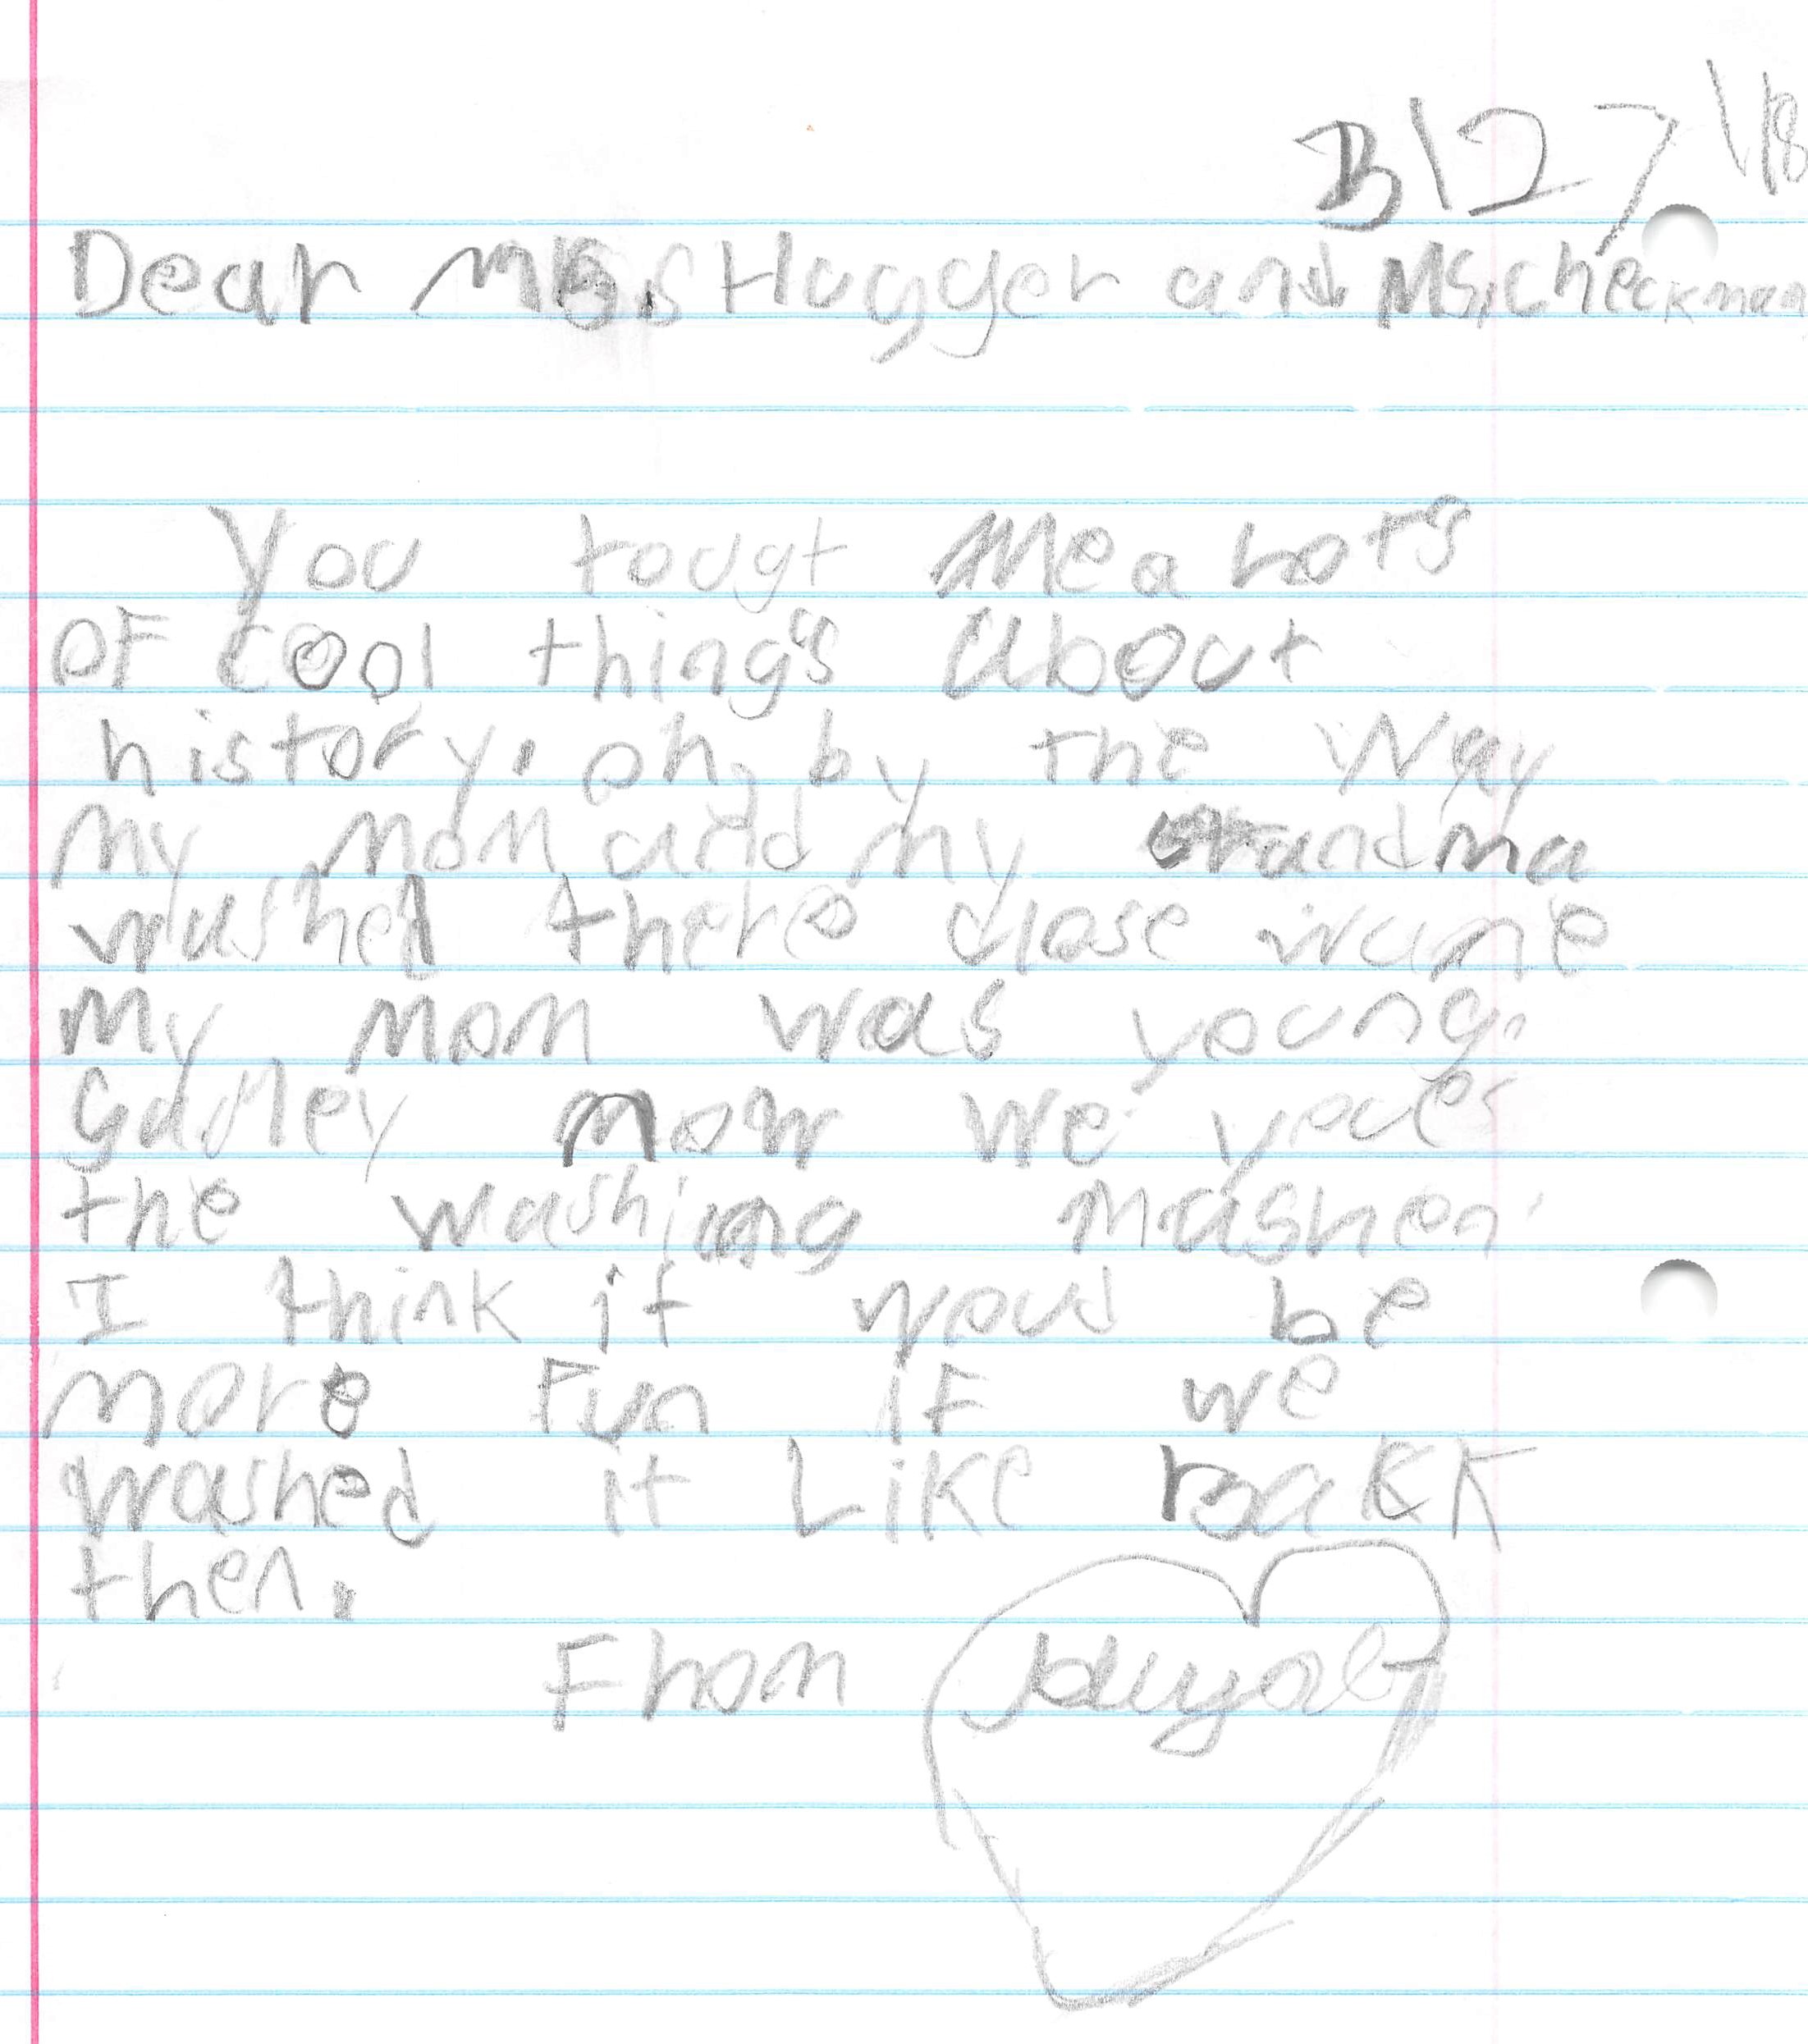 3\27\18
Dear Ms. Hugger and Ms. Checkman
You tougt me a Lots
of cool thing's about
history. oh, by the way
my mom and my Grandma
washed there close wane
my mom was young.
Gadley now we youes
the washing mashen.
I think it woud be
more fun if we
washed it Like back
then.
From